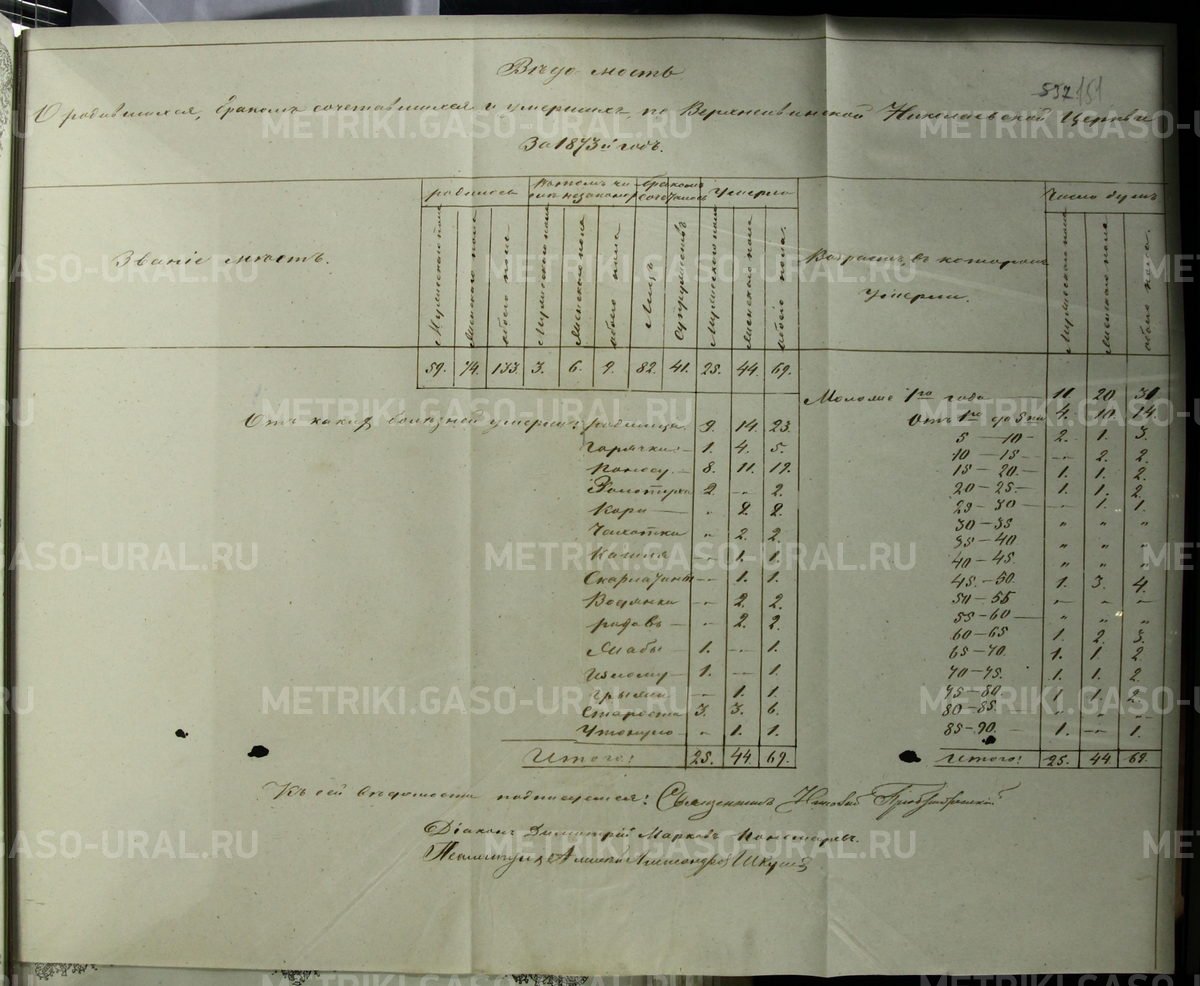 Вѣдомость
О родившихся, бракомъ сочетавшихся и умершихъ по Верхнейвинской Николаевской Церкви
За 1873й годъ.
532 151
Званіе мѣстъ.
родилось
Мужескаго пола
Женскаго пола
обоего пола
Въ томъ числѣ незаконнор.
Мужескаго пола
Женскаго пола
обоего пола
бракомъ сочеталось
Лицъ
Супружествъ
Умерло
Мужескаго пола
Женскаго пола
обоего пола.
Возрастъ, въ которомъ умерли.
Число душъ
Мужескаго пола
Женскаго пола
обоего пола.
59. 74. 133. 3. 6. 9. 82. 41. 25. 44. 69.
Отъ какихъ болѣзней умерли: родимца. 9. 14. 23.
Горячки 1. 4. 5.
Поносу 8. 11. 19.
Золотуха 2. -„- 2.
Кори „ 2. 2.
Чахотки „ 2. 2.
Кашля -„- 1. 1.
Скарлатины -„- 1. 1.
Водянки -„- 2. 2.
родовъ „ 2. 2.
Жабы 1. -„- 1.
1. -„- 1.
Грыжи -„- 1. 1.
Старости 3. 3. 6.
Утонуло „ 1. 1.
Итого: 25. 44. 69.
Моложе 1го года 11 20 31
Отъ 1го до 5ти 4. 10. 14.
5 — 10 2. 1. 3.
10 — 15 -„- 2. 2.
15 — 20. 1. 1. 2.
20 — 25. 1. 1. 2.
25 — 30 -„- 1. 1.
30 — 35 „ „ „
35 — 40 „ „ „
40 — 45. „ „ „
45. — 50. 1. 3. 4.
50 — 55 „ „ „
55 — 60 „ „ „
60 — 65 1. 2. 3.
65 — 70. 1. 1. 2.
70 — 75. 1. 1. 2.
75 — 80. 1. 1. 2.
80 — 85. „ „ „
85. — 90. 1. -„- 1.
Итого: 25. 44 69.
Къ сей вѣдомости подписуемся: Священникъ
Діаконъ Димитрій Марковъ Пономаревъ.
Псаломщикъ Александровъ
METRIKI.GASO-URAL.RU